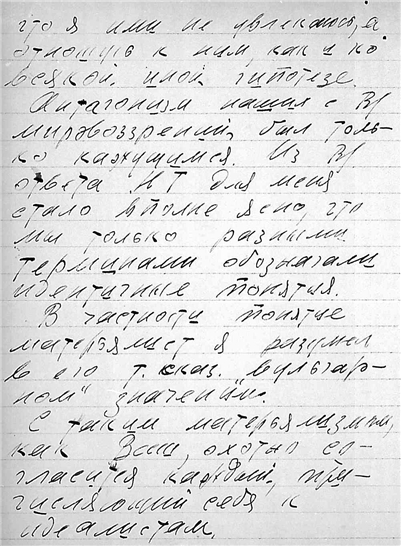 что я ими не увлекаюсь, а
отношусь к ним, как и ко
всякой иной гипотезе.
Антагонизм наших с В/
мировоззрений, был толь-
ко кажущимся. Из В/
ответа НТ для меня
стало вполне ясно, что
мы только разными
терминами обозначали
идентичные понятия.
В частности понятие
матерьялист я разумел
в его т. сказ. „вульгар-
ном“ значении.
С таким матерьялизмом,
как Ваш, охотно со-
гласится каждый, при-
числяющий себя к
идеалистам.